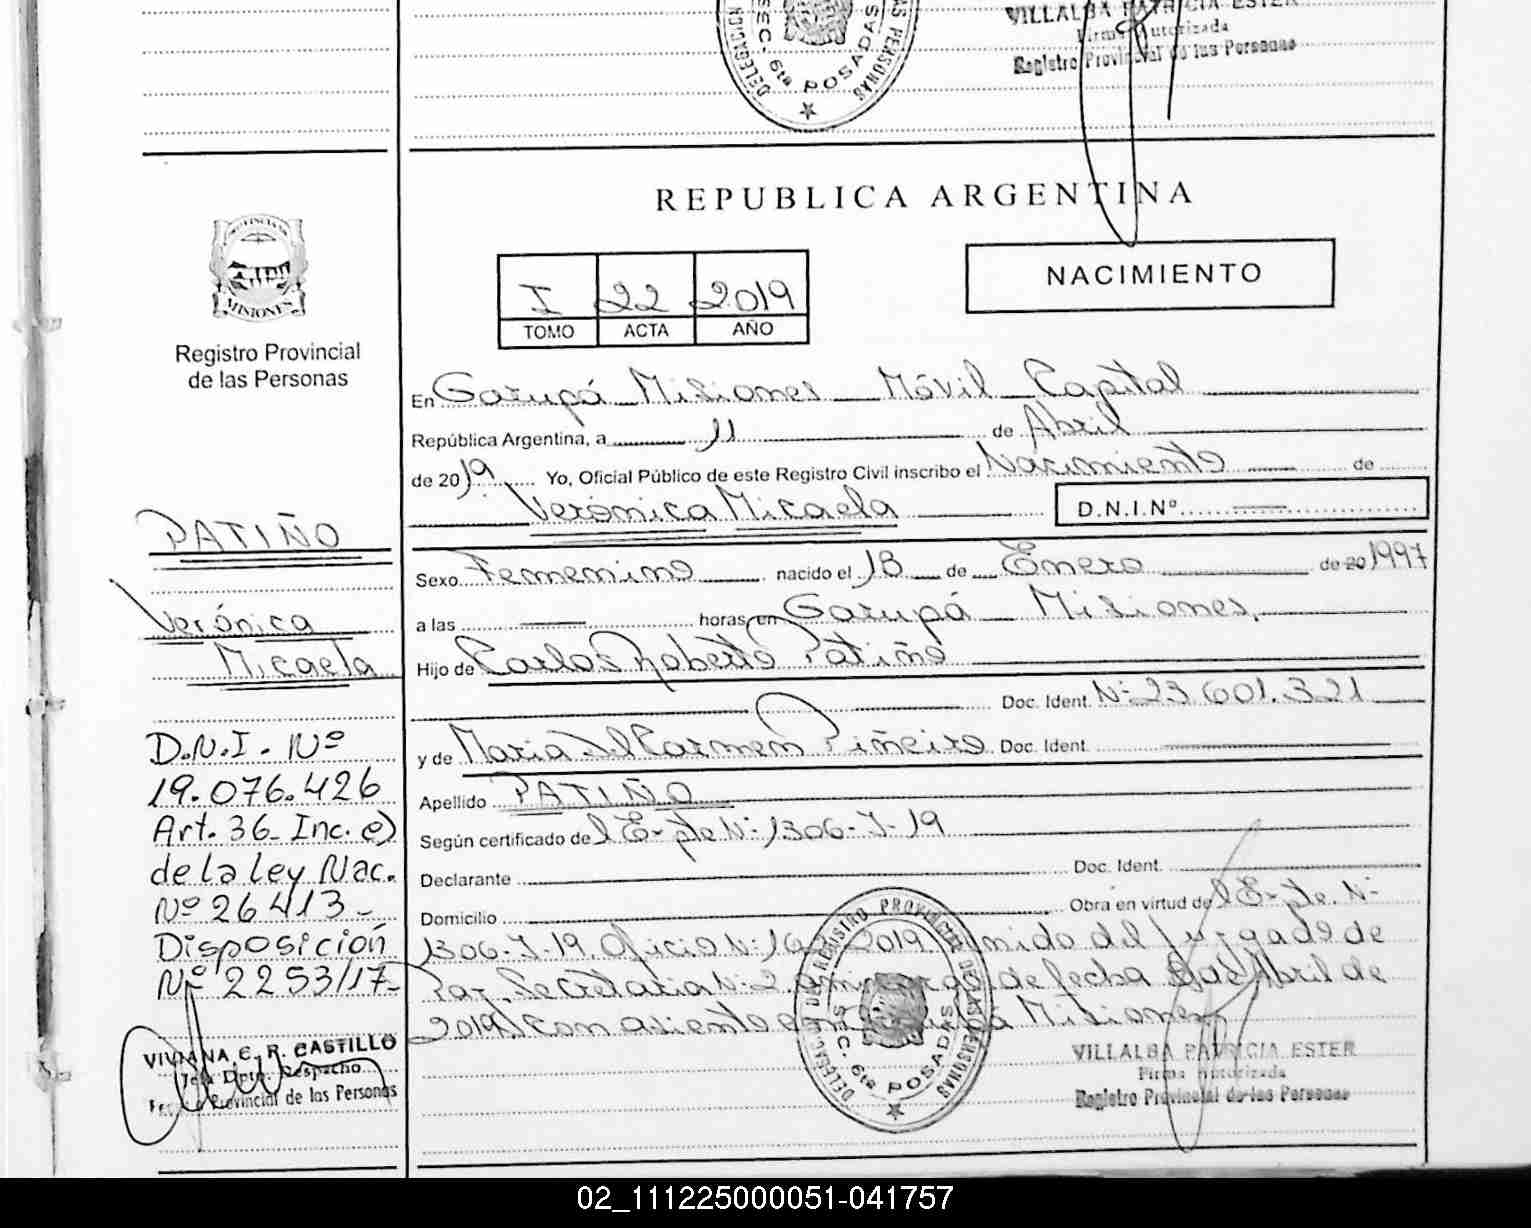 DELEGACION
PERSONAS
SEC. 6ta POSADAS
VILLALBA PATRICIA ESTER
Firma Autorizada
Registro Provincial de las Personas
REPUBLICA ARGENTINA
PROVINCIA DE
MISIONES
Registro Provincial
de las Personas
I 22 2019
TOMO ACTA AÑO
NACIMIENTO
En Garupá Misiones Móvil Capital
República Argentina, a 11 de Abril
de 2019 Yo, Oficial Público de este Registro Civil inscribo el Nacimiento de
Verónica Micaela D.N.I.Nº
Sexo Femenino nacido el 18 de Enero de 20 1997
a las horas en Garupá Misiones,
Hijo de Carlos Roberto Patiño
Doc. Ident. Nº 23.601.321
y de Maria Del Carmen Piñeiro Doc. Ident.
Apellido PATIÑO
Según certificado del Expte Nº 1306-J-19
Declarante Doc. Ident.
Domicilio Obra en virtud del Expte. Nº
1306-J-19. Oficio Nº 2019 del Juzgado de
Paz, Secretaria Nº 2 de fecha de Abril de
2019. Con asiento en Misiones
PATIÑO
Verónica
Micaela
D.N.I. Nº
19.076.426
Art. 36- Inc. e)
de la ley Nac.
Nº 26413-
Disposición
Nº 2253/17-
VIVIANA E. R. CASTILLO
Jefa Dpto. Despacho
Provincial de las Personas
DELEGAC. DE REGISTRO PROVINCIAL DE LAS PERSONAS
SEC. 6ta POSADAS
VILLALBA PATRICIA ESTER
Firma Autorizada
Registro Provincial de las Personas
02_111225000051-041757